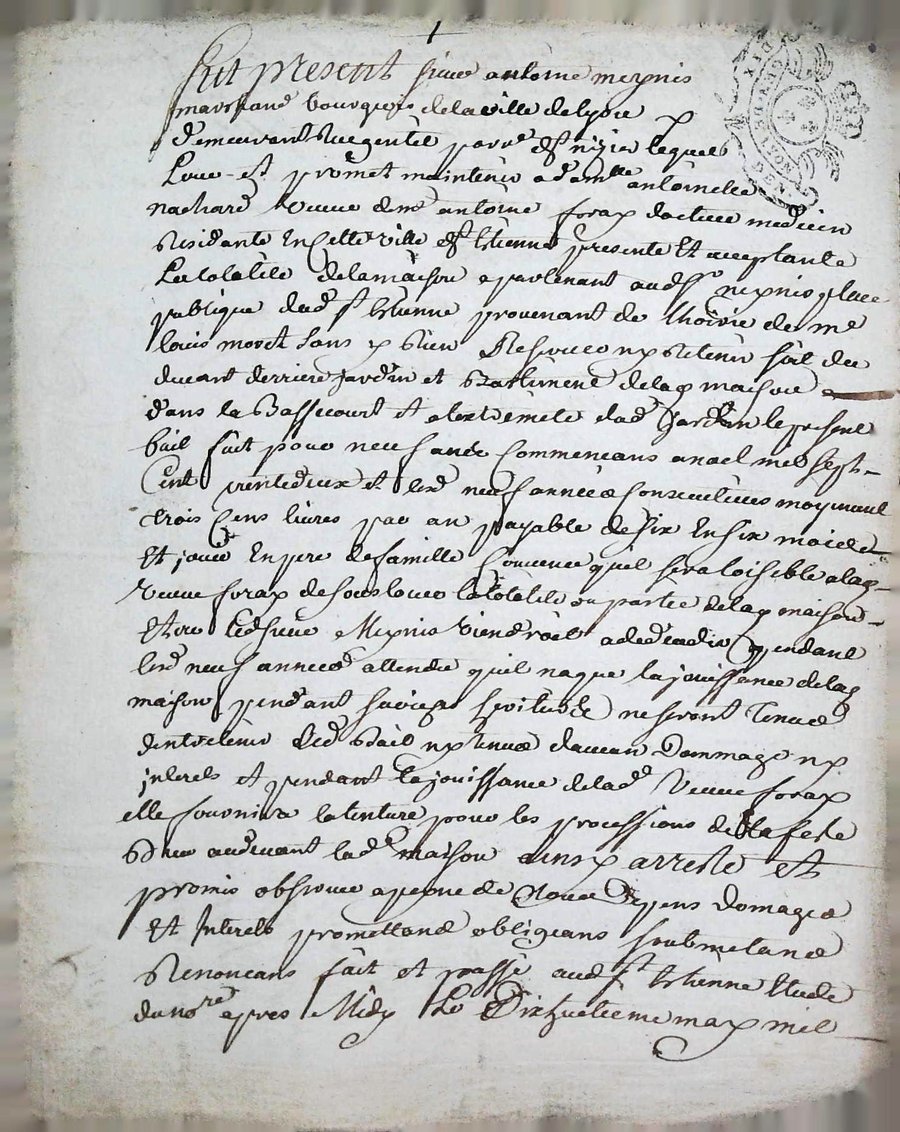 1
fut present sieur antoine meynis
marchand bourgeois de la ville de lyon y
demeurant rue gentil par.e st nizier lequel
Loue et promet maintenir a dam.lle antoinette
nachard veuve de m.e antoine forax docteur medecin
Residante En cette ville st Etienne presente Et acceptante
La totalité de la maison apartenant aud sr meynis place
publique dud st Etienne provenant de lhoirie de me
louis moret sans y Rien Reserver ny Retenir soit du
devant derriere jardin et Bastiment de lad maison
dans la Bassecourt et a lextremité dud jardin le present
bail fait pour neuf ans Commencans a noel mil sept
Cent trente deux et les neuf années Consecutives moyenant
trois Cens livres par an payable de six En six mois
Et jouir En pere de famille Convenu quil sera loisible a lad
veuve forax de souslouer la totalité ou partie de lad maison
Et ou led sieur Meynis viendroit a deceder pendant
les neuf années attendu quil na que la jouissance de lad
maison pendant sa vie ses heritiers ne seront tenus
dentretenir led Bail ny tenus daucun Dommage ny
interets et pendant la jouissance de lad veuve forax
elle fournira la tenture pour les processions de la feste
Dieu au devant lad maison ainsy arresté et
promis observer a peyne de tous Depens Domages
Et Interets promettans obligeans soubmetans
Renoncans fait et passé aud st Etienne Etude
du no.re apres Midy Le Dixhuitieme may mil
DIX
GEN. DE LYON
DEN.